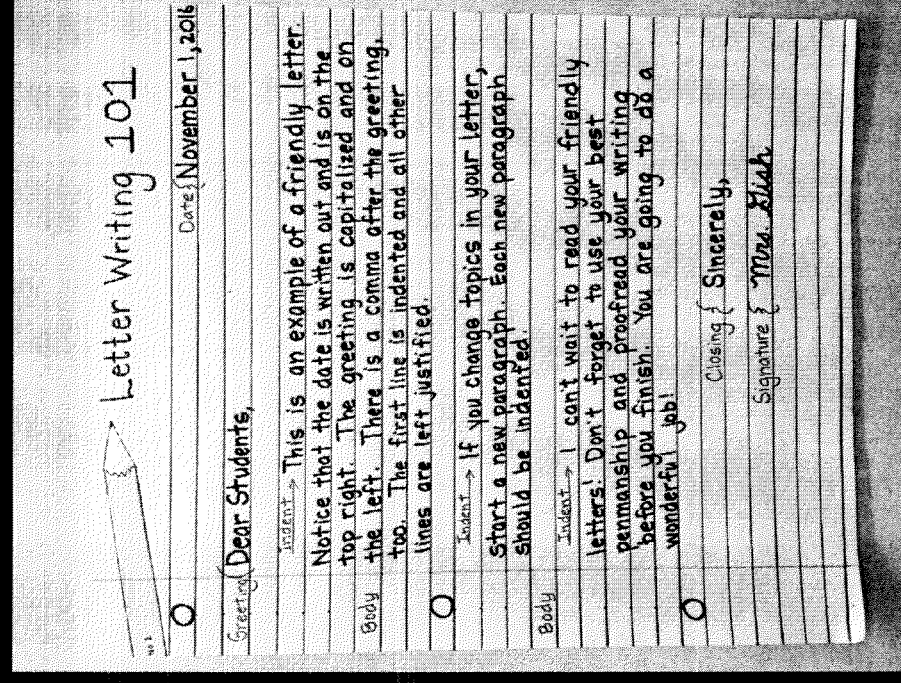 Letter Writing 101
No 2
Date{November 1, 2016
Greeting{Dear Students,
Indent → This is an example of a friendly letter.
Notice that the date is written out and is on the
top right. The greeting is capitalized and on
Body the left. There is a comma after the greeting,
too. The first line is indented and all other
lines are left justified.
Indent → If you change topics in your letter,
start a new paragraph. Each new paragraph
should be indented.
Body
Indent → I can't wait to read your friendly
letters! Don't forget to use your best
penmanship and proofread your writing
before you finish. You are going to do a
wonderful job!
Closing{ Sincerely,
Signature { Mrs. Gish